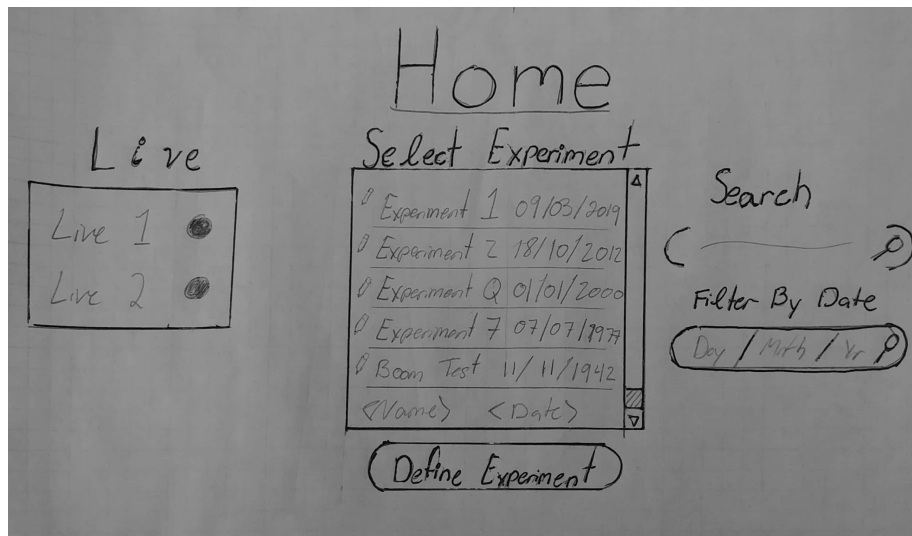 Home
Live
Live 1
Live 2
Select Experiment
Experiment 1 09/03/2019
Experiment 2 18/10/2012
Experiment Q 01/01/2000
Experiment 7 07/07/1977
Boom Test 11/11/1942
<Name> <Date>
Define Experiment
Search
Filter By Date
Day / Mnth / Yr